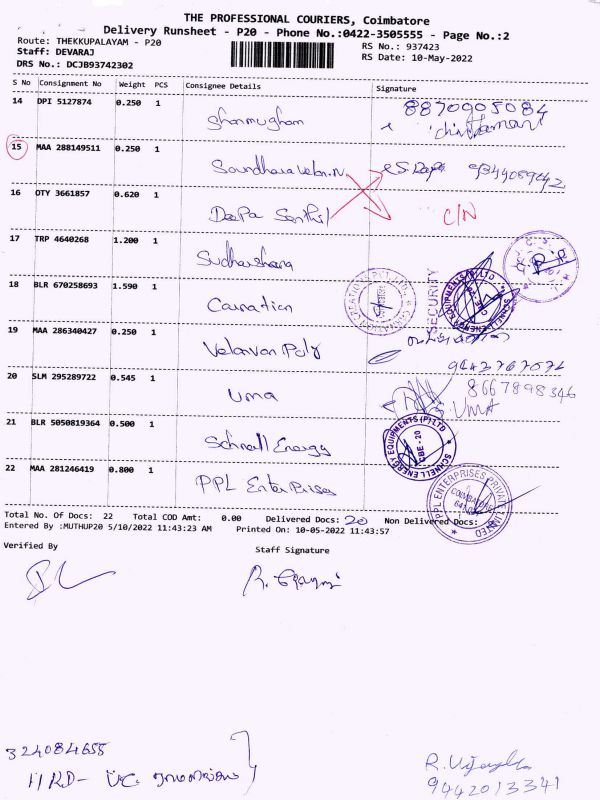 THE PROFESSIONAL COURIERS, Coimbatore
Delivery Runsheet - P20 - Phone No.:0422-3505555 - Page No.:2
Route: THEKKUPALAYAM - P20
RS No.: 937423
Staff: DEVARAJ
RS Date: 10-May-2022
DRS No.: DCJB93742302
S No Consignment No Weight PCS Consignee Details Signature
14 DPI 5127874 0.250 1
Shanmugham
8870905084
15 MAA 288149511 0.250 1
Soundhara Velan.N
9344089442
16 OTY 3661857 0.620 1
Deepa Senthil
C/N
17 TRP 4640268 1.200 1
Sudharshana
18 BLR 670258693 1.590 1
Carnation
SECURITY
SCHNELL ENERGY EQUIPMENTS (P) LTD
19 MAA 286340427 0.250 1
Velavan Poly
20 SLM 295289722 0.545 1
Uma
8667898346
UMA
21 BLR 5050819364 0.500 1
Schnell Energy
SCHNELL ENERGY EQUIPMENTS (P) LTD
CBE - 20
22 MAA 281246419 0.800 1
PPL Enterprises
PPL ENTERPRISES PRIVATE LIMITED
COIMBATORE
Total No. Of Docs: 22 Total COD Amt: 0.00 Delivered Docs: 20 Non Delivered Docs:
Entered By :MUTHUP20 5/10/2022 11:43:23 AM Printed On: 10-05-2022 11:43:57
Verified By
Staff Signature
324084655
HRD-
9442013341